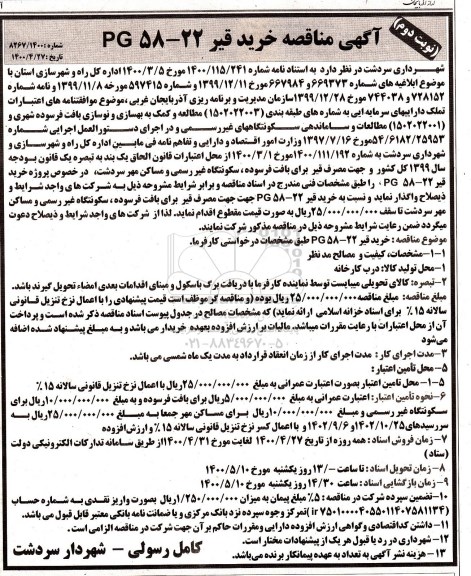 (نوبت دوم)
آگهی مناقصه خرید قیر PG ۵۸-۲۲
شماره: ۸۲۶۷/۱۴۰۰
تاریخ: ۱۴۰۰/۴/۲۷
شهرداری سردشت در نظر دارد به استناد نامه شماره ۱۴۰۰/۱۱۵/۲۴۱ مورخ ۱۴۰۰/۳/۵ اداره کل راه و شهرسازی استان با
موضوع ابلاغیه های شماره ۶۶۹۳۷۳ و ۶۶۷۹۸۴ مورخ ۱۳۹۹/۱۲/۱۱ و شماره ۵۹۷۴۱۵ مورخه ۱۳۹۹/۱۱/۸ و نامه شماره
۷۲۸۱۵۲ و ۷۴۴۰۳۸ مورخ ۱۳۹۹/۱۲/۲۸ سازمان مدیریت و برنامه ریزی آذربایجان غربی، موضوع موافقتنامه های اعتبارات
تملک دارایهای سرمایه ایی به شماره های طبقه بندی (۱۵۰۲۰۲۲۰۰۳) مطالعه و کمک به بهسازی و نوسازی بافت فرسوده شهری و
(۱۵۰۲۰۲۲۰۰۱) مطالعات و ساماندهی سکونتگاههای غیررسمی و در اجرای دستورالعمل اجرایی شماره
۵۴/۶۱۸۲/۲۵۹۵۳ مورخ ۱۳۹۷/۷/۱۶ وزارت امور اقتصاد و دارایی و تفاهم نامه فی مابین اداره کل راه و شهرسازی و
شهرداری سردشت به شماره ۱۴۰۰/۱۱۱/۱۹۲ مورخ ۱۴۰۰/۳/۱ از محل اعتبارات قانون الحاق یک بند به تبصره یک قانون بودجه
سال ۱۳۹۹ کل کشور و جهت مصرف قیر برای بافت فرسوده، سکونتگاه غیر رسمی و مساکن مهر سردشت، در خصوص پروژه خرید
قیر PG ۵۸-۲۲، را طبق مشخصات فنی مندرج در اسناد مناقصه و برابر شرایط مشروحه ذیل به شرکت های واجد شرایط و
ذیصلاح واگذار نماید و نسبت به خرید قیر PG ۵۸-۲۲ جهت جهت مصرف قیر برای بافت فرسوده، سکونتگاه غیر رسمی و مساکن
مهر سردشت تا سقف ۲۵/۰۰۰/۰۰۰/۰۰۰ ریال به صورت قیمت مقطوع اقدام نماید. لذا از شرکت های واجد شرایط و ذیصلاح دعوت
میگردد ضمن رعایت شرایط مشروحه ذیل در مناقصه مذکور شرکت نمایند.
موضوع مناقصه: خرید قیر PG ۵۸-۲۲ طبق مشخصات درخواستی کارفرما.
۱-۱- مشخصات، کیفیت و مصالح مد نظر
۱- محل تولید کالا: درب کارخانه
۲- تبصره: کالای تحویلی میبایست توسط نماینده کارفرما با دریافت برگ باسکول و مبنای اقدامات بعدی امضاء تحویل گیرند باشد.
مبلغ مناقصه: مبلغ مناقصه ۲۵/۰۰۰/۰۰۰/۰۰۰ ریال بوده (و مناقصه گر موظف است قیمت پیشنهادی را با اعمال نرخ تنزیل قانونی
سالانه ۱۵٪ برای اسناد خزانه اسلامی ارائه نماید) که مشخصات مصالح در جدول پیوست اسناد مناقصه ذکر شده است و پرداخت
آن از محل اعتبارات با رعایت مقررات میباشد. مالیات بر ارزش افزوده بعهده خریدار می باشد و به مبلغ پیشنهاد شده اضافه
می‌شود
۳- مدت اجرای کار: مدت اجرای کار از زمان انعقاد قرارداد به مدت یک ماه شمسی می باشد.
۵- محل تأمین اعتبار:
۵-۱- محل تامین اعتبار بصورت اعتبارت عمرانی به مبلغ ۲۵/۰۰۰/۰۰۰/۰۰۰ ریال با اعمال نرخ تنزیل قانونی سالانه ۱۵٪
۶- نحوه تأمین اعتبار: اعتبارت عمرانی به مبلغ ۵/۰۰۰/۰۰۰/۰۰۰ ریال برای بافت فرسوده و به مبلغ ۱۰/۰۰۰/۰۰۰/۰۰۰ ریال برای
سکونتگاه غیر رسمی و مبلغ ۱۰/۰۰۰/۰۰۰/۰۰۰ ریال برای مساکن مهر جمعا به مبلغ ۲۵/۰۰۰/۰۰۰/۰۰۰ ریال به
سررسیدهای ۱۴۰۲/۱۰/۲۵ و ۱۴۰۲/۹/۶ و با اعمال کسر نرخ تنزیل قانونی سالانه ۱۵٪ و ارزش افزوده
۷- زمان فروش اسناد: همه روزه از تاریخ ۱۴۰۰/۴/۲۷ لغایت مورخ ۱۴۰۰/۴/۳۱ از طریق سامانه تدارکات الکترونیکی دولت
(ستاد)
۸- زمان تحویل اسناد: تا ساعت ۱۳/۰۰ روز یکشنبه مورخ ۱۴۰۰/۵/۱۰
۹- زمان بازگشایی اسناد: ساعت ۱۴/۳۰ روز یکشنبه مورخ ۱۴۰۰/۵/۱۰
۱۰- تضمین سپرده شرکت در مناقصه: ۵٪ مبلغ پیمان به میزان ۱/۲۵۰/۰۰۰/۰۰۰ ریال بصورت واریز نقدی به شماره حساب
(ir ۷۵۰۱۰۰۰۰۴۰۵۵۰۱۱۴۰۷۵۸۱۱۳۴) تمرکز وجوه سپرده نزد بانک مرکزی و یا ضمانت نامه بانکی معتبر قابل قبول می باشد.
۱۱- داشتن کداقتصادی و گواهی ارزش افزوده دارایی ومقررات حاکم بر آن جهت شرکت در مناقصه الزامی است.
۱۲- شهرداری در رد یا قبول هر یک از پیشنهادات مختار است.
۱۳- هزینه نشر آگهی به تعداد به عهده پیمانکار برنده می‌باشد.
کامل رسولی - شهردار سردشت
۰۲۱-۸۸۳۴۹۶۷۰-۵